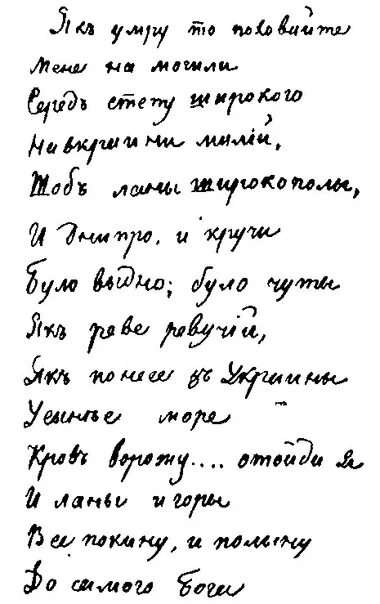 Якъ умру то поховайте
Мене на могили
Середъ степу широкого
На вкраини милій,
Щобъ ланы широкополы,
И Днипро, и кручи
Було выдно; було чуты
Якъ реве ревучій,
Якъ понесе въ Украины
У сынье море
Кровъ ворожу.... отойди я
И ланы и горы
Все покину, и полыну
До самого Бога